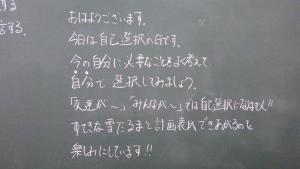 する
言する.
おはようございます。
今日は自己選択の日です。
今の自分に必要なことをよく考えて
自分で選択してみましょう。
「友達が～」「みんなが～」では自己選択になりません!!
すてきな雪だるまと計画表ができあがるのを
楽しみにしています!!